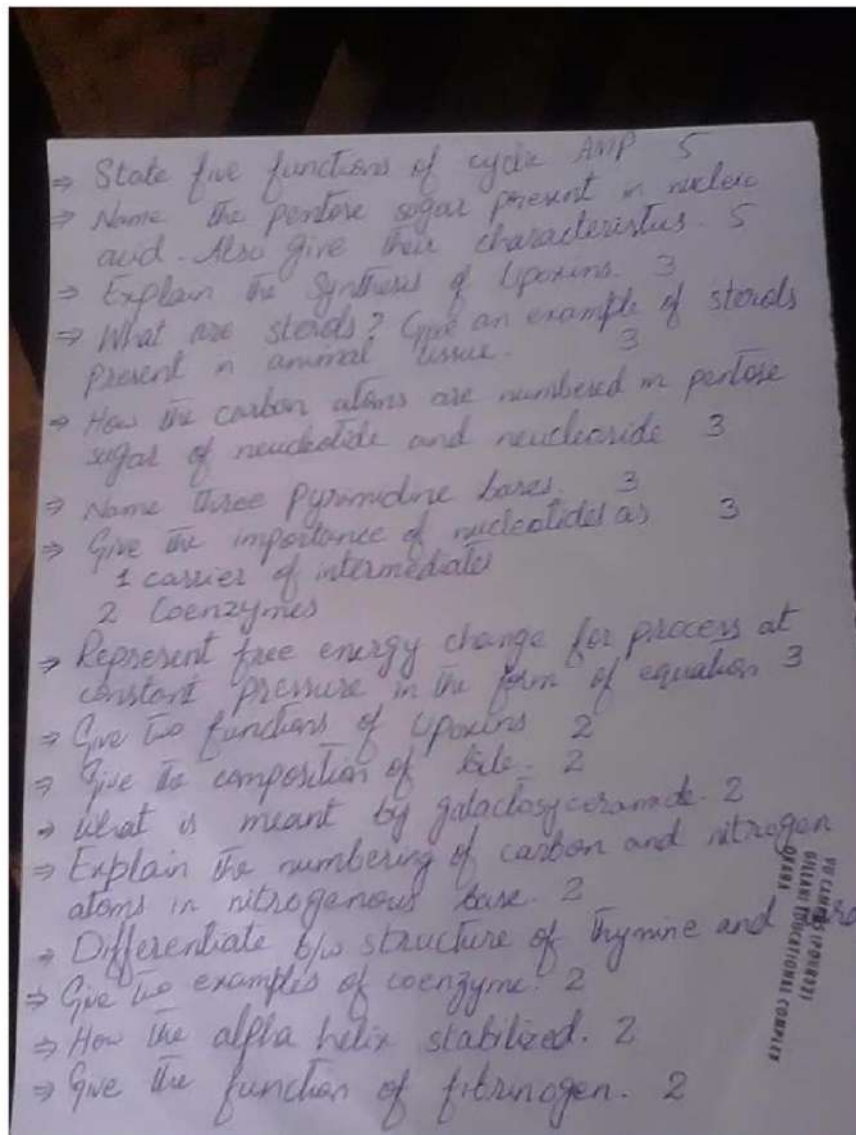 ⇒ State five functions of cyclic AMP 5
⇒ Name the pentose sugar present in nucleic
acid. Also give their characteristics. 5
⇒ Explain the Synthesis of Lipoxins. 3
⇒ What are sterols? Give an example of sterols
present in animal tissue. 3
⇒ How the carbon atoms are numbered in pentose
sugar of neucleotide and neucleoside 3
⇒ Name three Pyrimidine bases. 3
⇒ Give the importance of nucleotides as 3
1 carrier of intermediates
2 Coenzymes
⇒ Represent free energy change for process at
constant pressure in the form of equation 3
⇒ Give two functions of Lipoxins 2
⇒ Give the composition of bile. 2
⇒ What is meant by galactosyceramide. 2
⇒ Explain the numbering of carbon and nitrogen
atoms in nitrogenous base. 2
⇒ Differentiate b/w structure of Thymine and
⇒ Give two examples of coenzyme. 2
⇒ How the alpha helix stabilized. 2
⇒ Give the function of fibrinogen. 2
VU CAMPUS
GILLANI EDUCATIONAL COMPLEX
OKARA